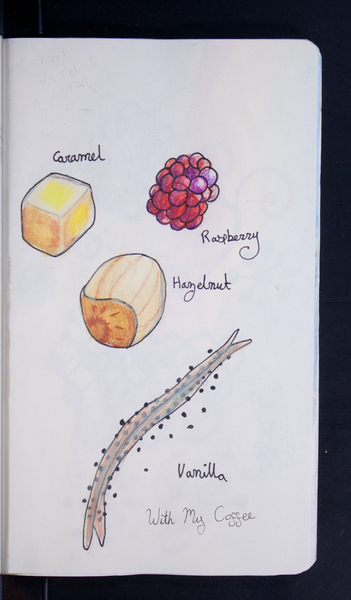 Caramel
Raspberry
Hazelnut
Vanilla
With My Coffee